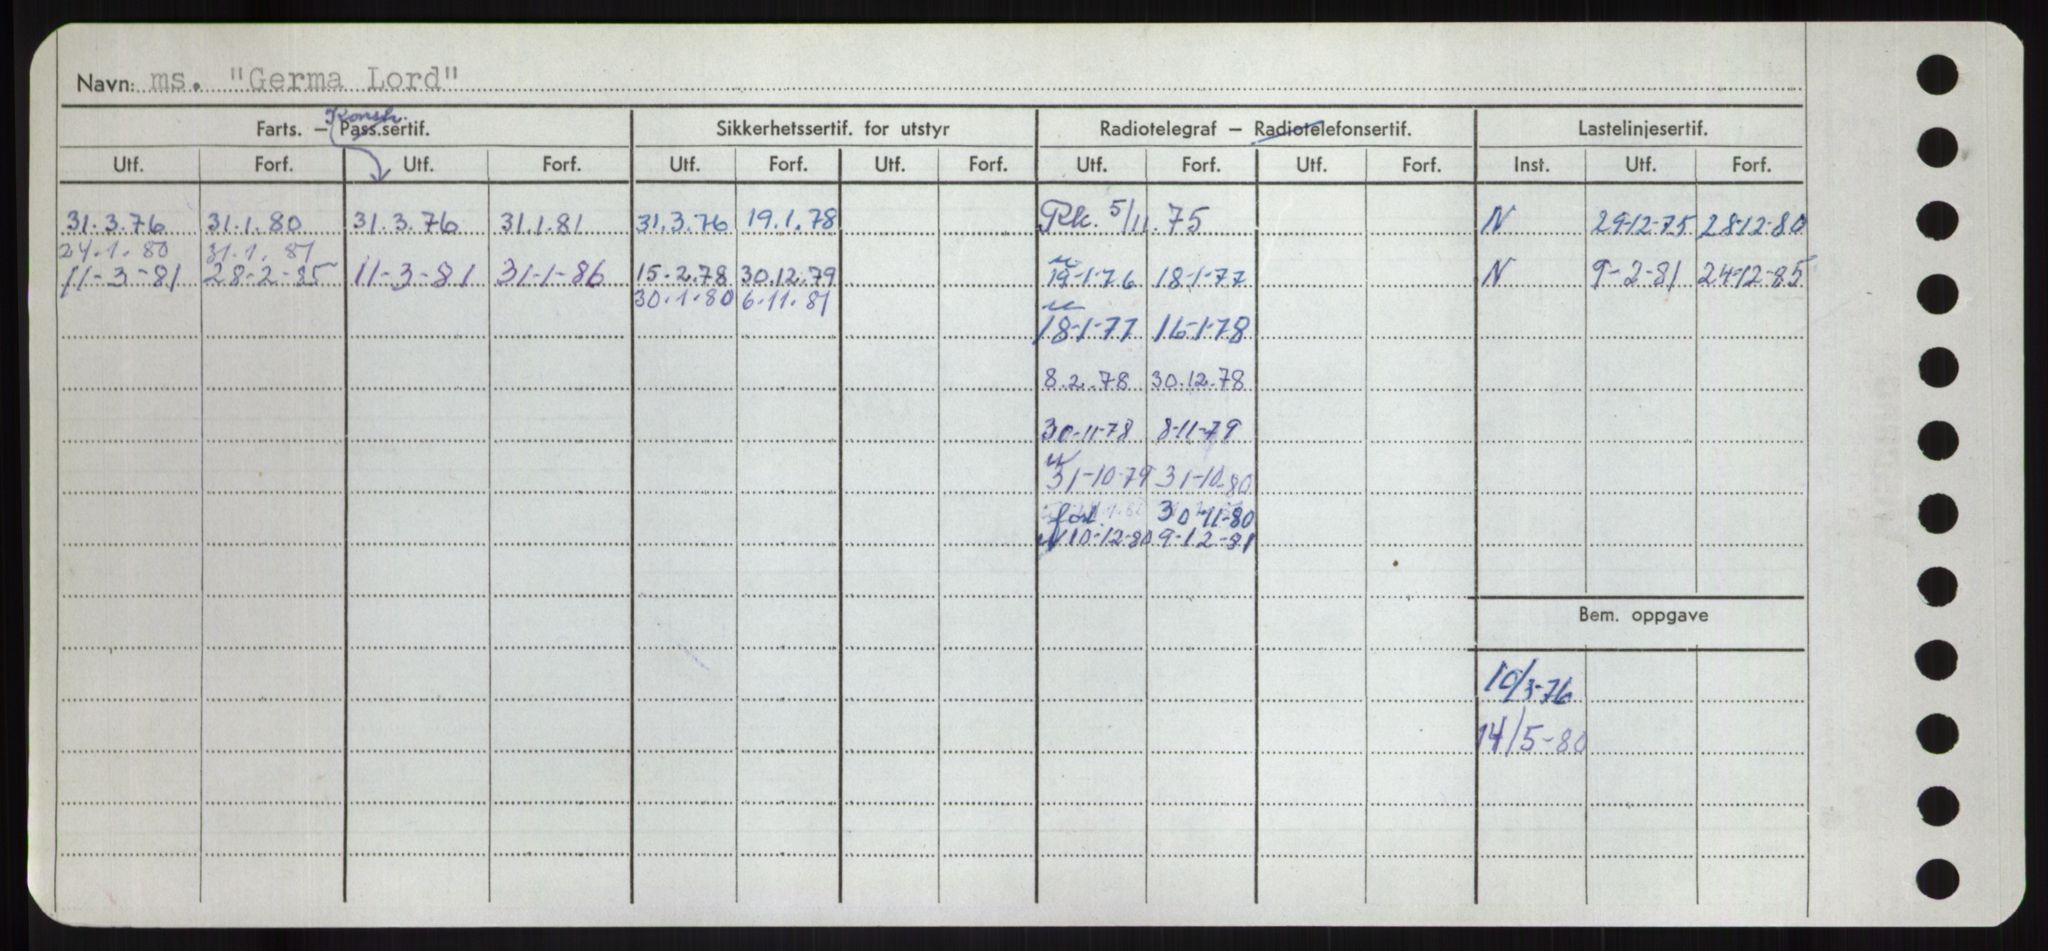 Navn: ms. "Germa Lord"
Konstr.
Farts. — Pass.sertif. Sikkerhetssertif. for utstyr Radiotelegraf — Radiotelefonsertif. Lastelinjesertif.
Utf. Forf. Utf. Forf. Utf. Forf. Utf. Forf. Utf. Forf. Utf. Forf. Inst. Utf. Forf.
31.3.76 31.1.80 31.3.76 31.1.81 31.3.76 19.1.78 Rk. 5/11.75 N 29-12-75 28-12-80
24.1.80 31.1.81
11-3-81 28-2-85 11-3-81 31-1-86 15.2.78 30.12.79 19-1-76 18-1-77 N 9-2-81 24-12-85
30.1.80 6.11.81
18-1-77 16-1-78
8.2.78 30.12.78
30-11-78 8-11-79
31-10-79 31-10-80
forl. 30-11-80
N 10-12-80 9-12-81
Bem. oppgave
10/3-76
14/5-80